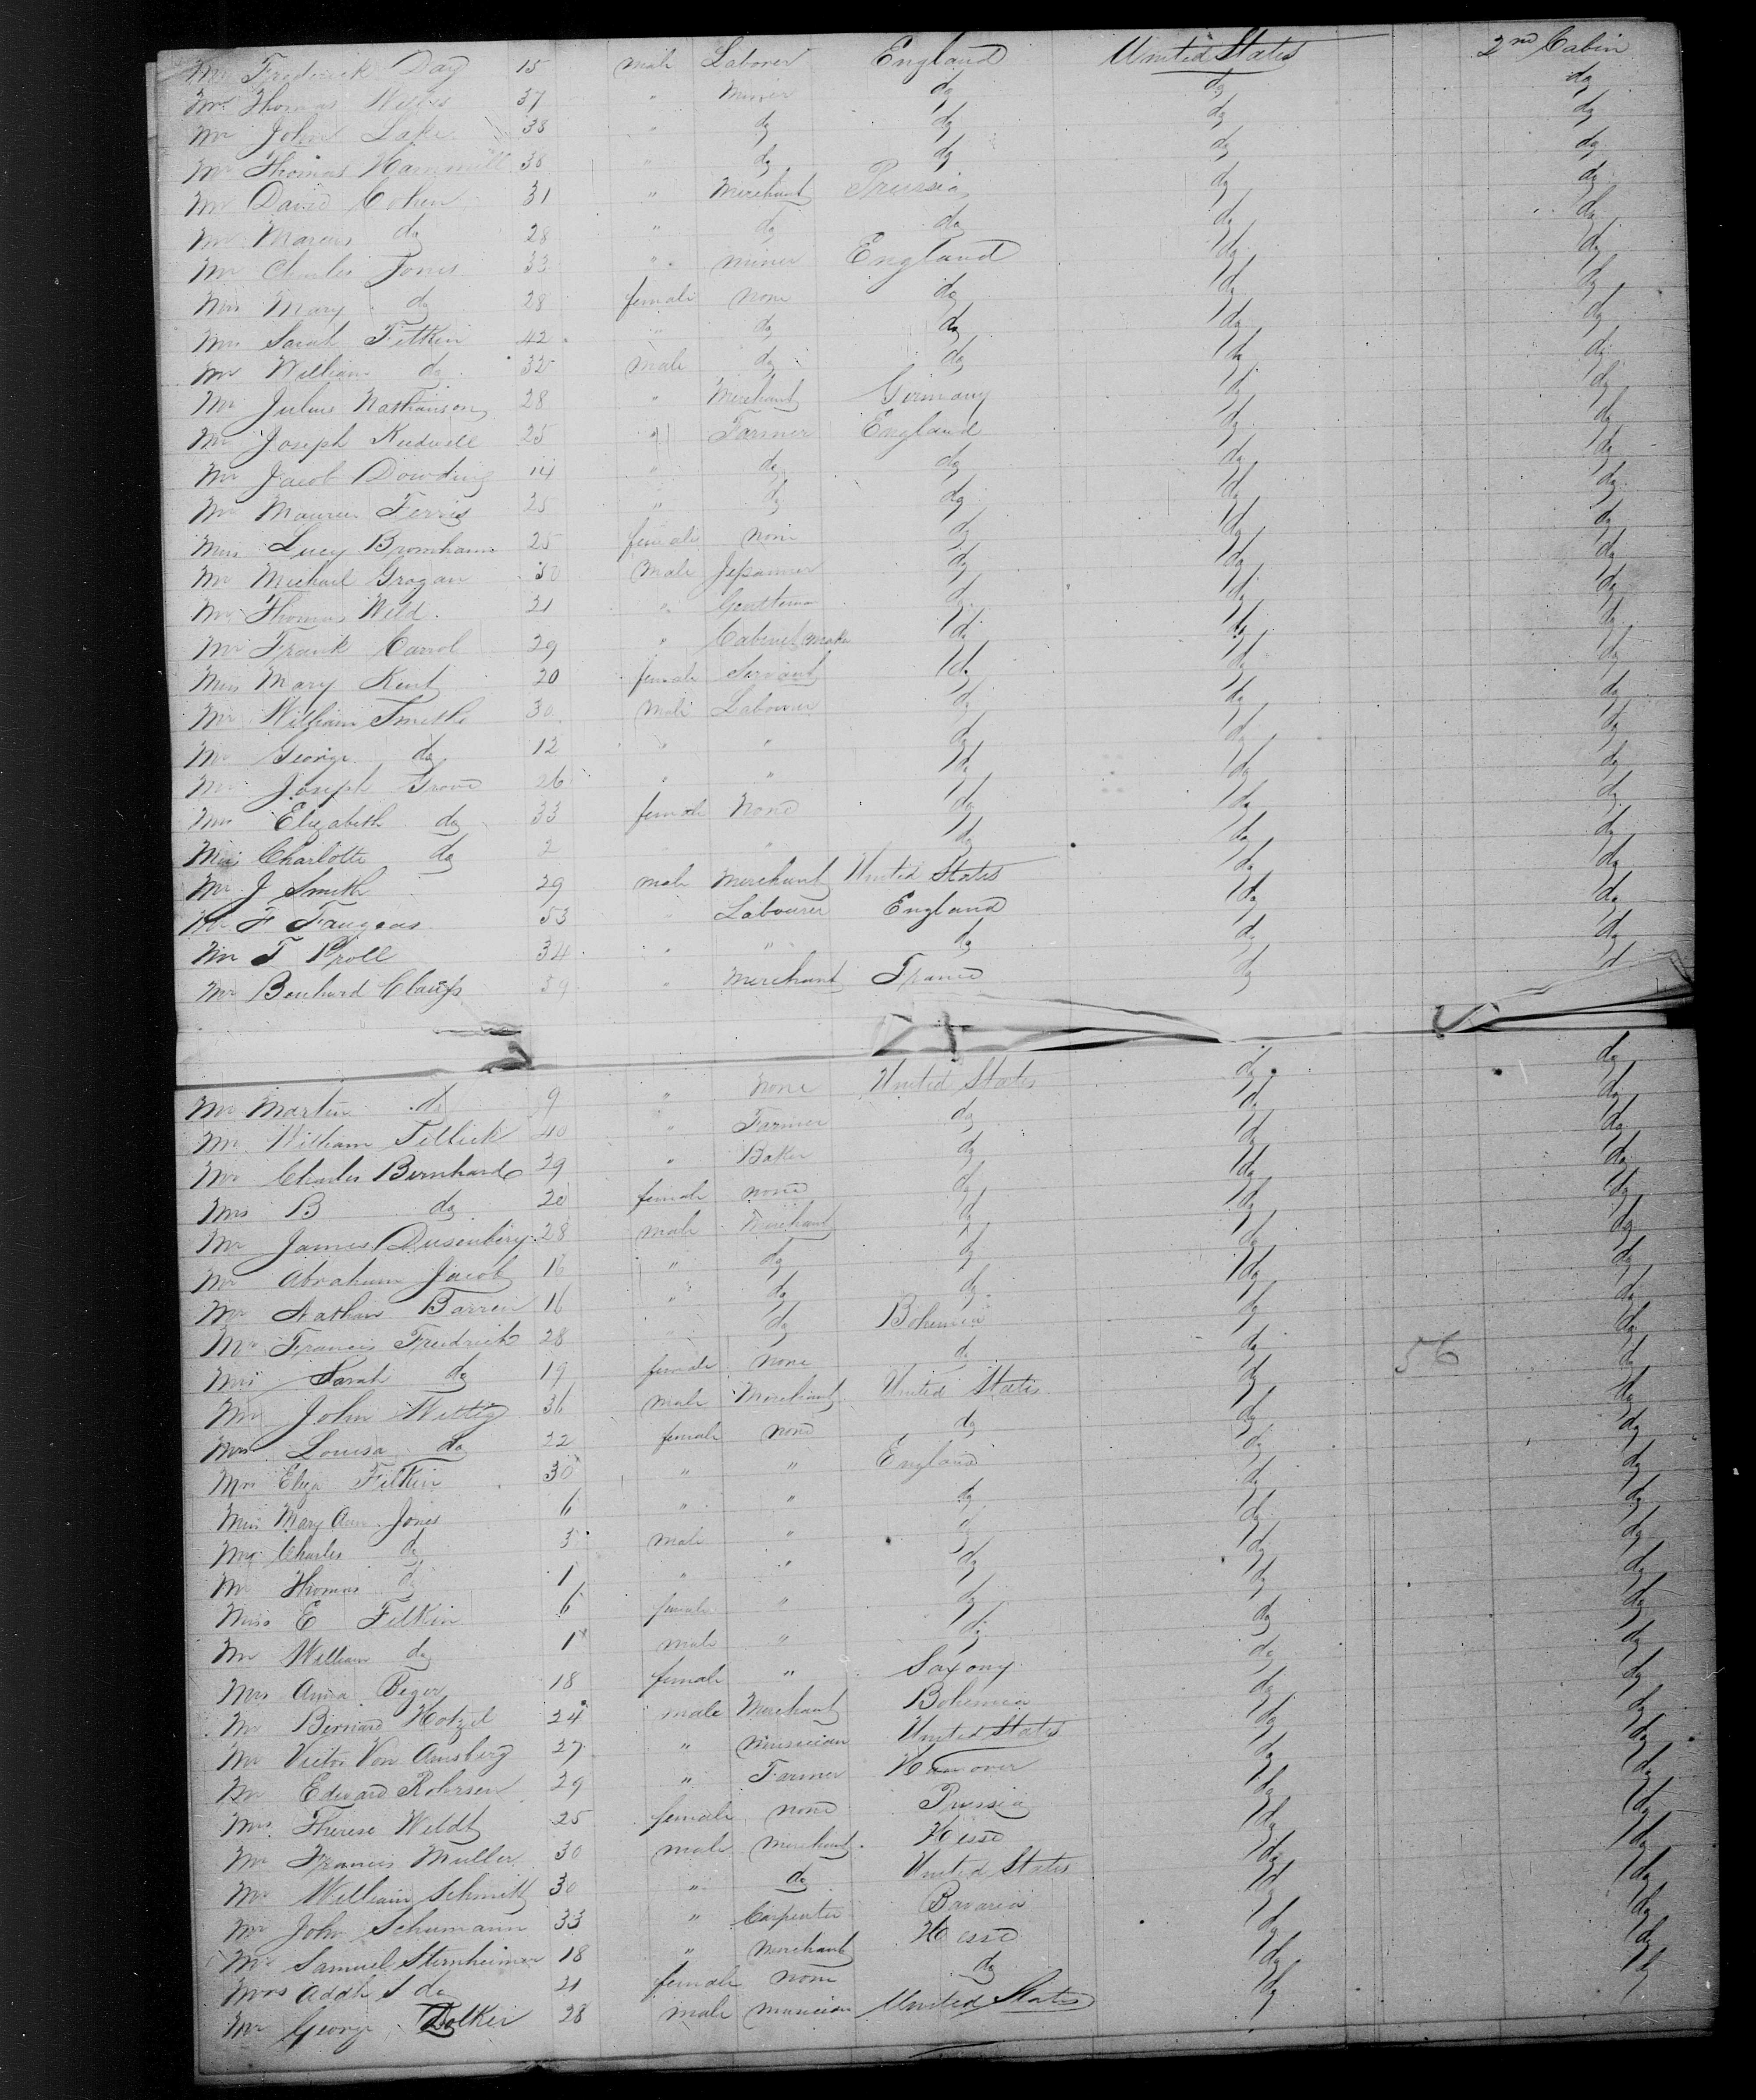 Mr Frederick Day 15 male Laborer England United States 2nd Cabin
Mr Thomas 37 " Miner do do do
Mr John Lake 38 " do do do do
Mr Thomas Hammill 38 " do do do do
Mr David Cohen 31 " Merchant Prussia do do
Mr Marcus do 28 " do do do do
Mr Charles Jones 33 " miner England do do
Mrs Mary do 28 female none do do do
Mrs Sarah Fitkin 42 " do do do do
Mr William do male do do do do
Mr Julius Nathanson 28 " Merchant Germany do do
Mr Joseph 25 " Farmer England do do
Mr Jacob Dowding 14 " do do do do
Mr Ferris 25 " do do do do
Miss Lucy Bromham 25 female none do do do
Mr Michael Grogan 30 male Japanner do do do
Mr Thomas Weld 21 " Gentleman do do do
Mr Frank Carrol 29 " Cabinet maker do do do
Miss Mary Kent 20 female Servant do do do
Mr William Smith 30 male Labourer do do do
Mr George do 12 " " do do do
Mr Joseph Grove 26 " " do do do
Mrs Elizabeth do 33 female None do do do
Miss Charlotte do 2 " do do do
Mr J Smith 29 male Merchant United States do do
Mr F 53 Labourer England do do
Mr T Proll 34 " " do do do
Mr Claufs 39 " Merchant France do do
Mr Martin do 9 " none United States do do
Mr William 40 " Farmer do do do
Mr Charles Bernhard 29 " Baker do do do
Mrs B do 20 female none do do do
Mr James Dusenbery 28 male Merchant do do do
Mr Abraham Jacob 16 " do do do do
Mr Nathan 16 " do do do do
Mr Francis Fredrick 28 do Bohemia do do
Mrs Sarah do 19 female none do do do
56
Mr John Witty 36 male Merchant United States do do
Mrs Louisa do 22 female none do do do
Mrs Eliza Fitkin 30 " " England do do
Miss Mary Ann Jones 6 " " do do do
Mr Charles do 3 male " do do do
Mr Thomas do 1 " " do do do
Miss E Fitkin 6 female " do do do
Mr William do 1 male " do do do
Mrs Anna Beger 18 female " Saxony do do
Mr Bernard Hotzel 24 male Merchant Bohemia do do
Mr Victor Von Amsberg 27 " musician United States do do
Mr Edward Rohrsen 29 " Farmer Hanover do do
Mrs Therese Weldt 25 female none Prussia do do
Mr Francis Muller 30 male merchant Hesse do do
Mr William Schmitt 30 " do United States do do
Mr John Schumann 33 " Carpenter Bavaria do do
Mr Samuel Sternheimer 18 " merchant Hesse do do
Mrs do 21 female none do do do
Mr George 28 male musician United States do do